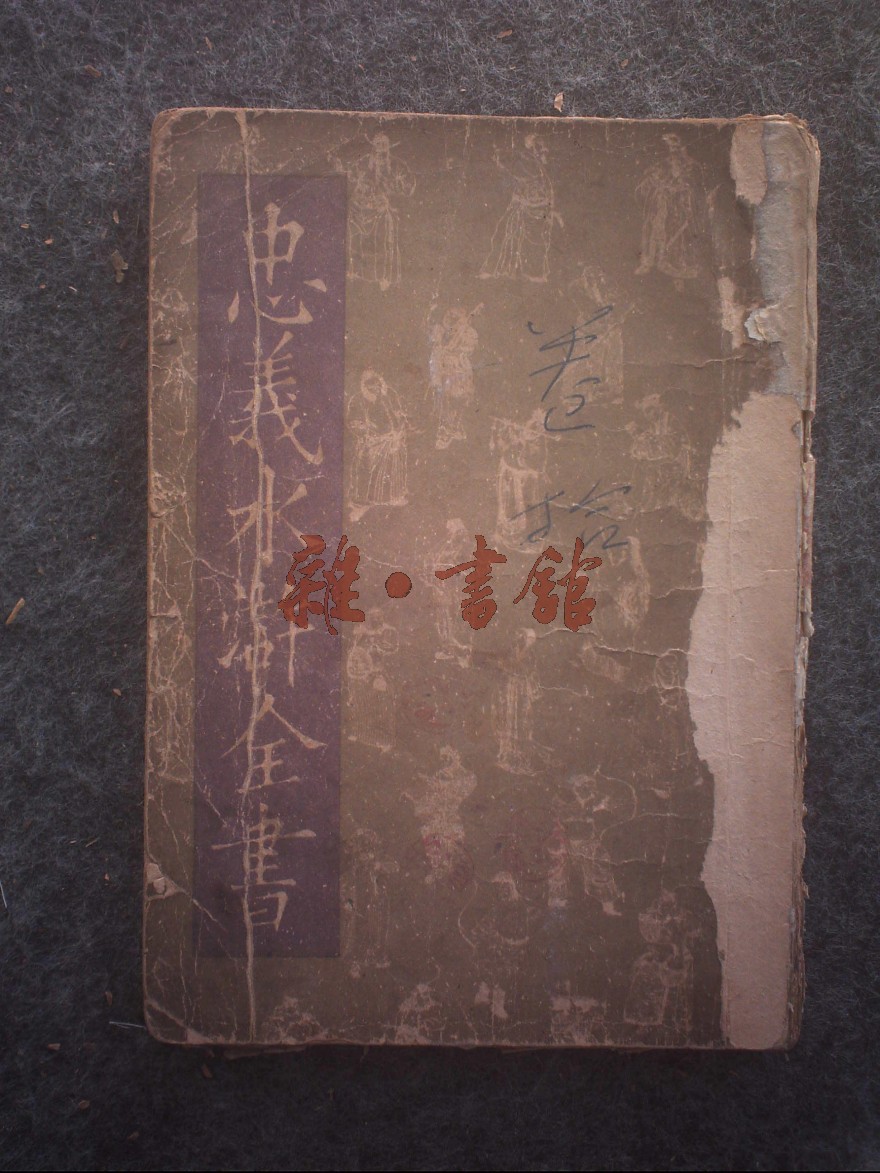 忠義水滸全書
卷拾
雜·書館